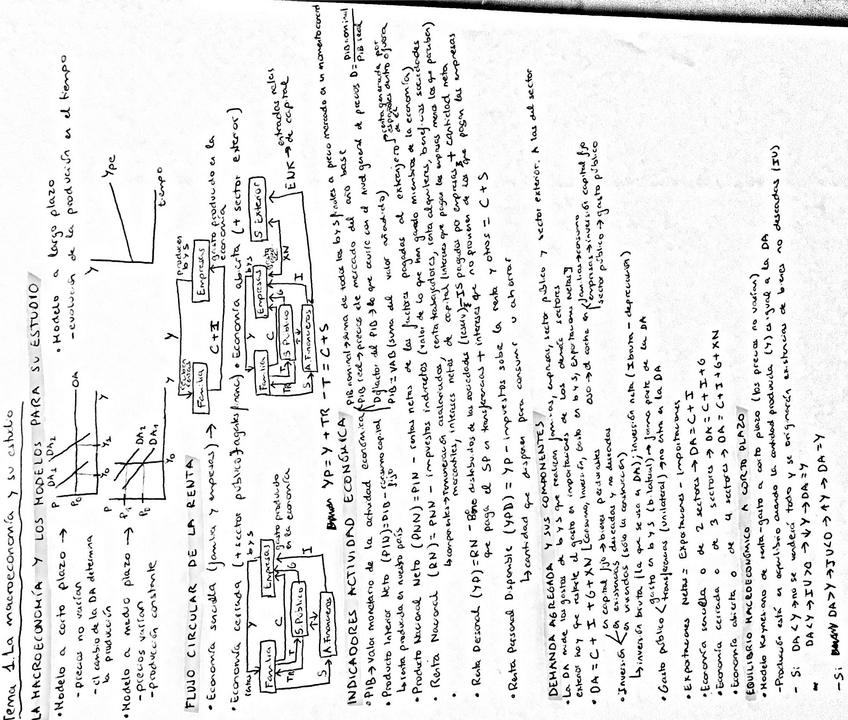 Tema 1. La macroeconomía y su estudio
LA MACROECONOMÍA Y LOS MODELOS PARA SU ESTUDIO
• Modelo a corto plazo →
- precios no varían
- el cambio de la DA determina
la producción
P
P₀
DA₁ DA₂
OA
Y₀ Y₁ Y
• Modelo a medio plazo →
- precios varían
- producción constante
P
P₁
P₀
DA₂
DA₁
Y₀ Y
• Modelo a largo plazo
- evolución de la producción en el tiempo
Y
Ypc
tiempo
FLUJO CIRCULAR DE LA RENTA
• Economía sencilla (familia y empresas) →
Y
Familia
C + I
Empresas
producen
b y s
gasto producido en la
economía
• Economía cerrada (+ sector público)
Y
b y s
Familia
C
Empresas
gasto producido
en la economía
TR
T
S. Público
G
I
S → A. Financieros
• Economía abierta (+ sector exterior)
Y
b y s
Familia
C
Empresas
S. Exterior
XN
TR
T
S. Público
G
I
S → A. Financieros
ENK → entradas netas
de capital
YP = Y + TR - T = C + S
INDICADORES ACTIVIDAD ECONÓMICA
• PIB → Valor monetario de la actividad económica
PIB nominal → suma de todos los b y s finales a precio mercado en un momento
PIB real → precios de mercado del año base
Deflactor del PIB → lo que ocurre en el nivel general de precios D = PIB nominal / PIB real
PIB = VAB (suma del valor añadido)
• Producto Interior Neto (PIN) = PIB - consumo capital fijo
↳ renta producida en nuestro país
• Producto Nacional Neto (PNN) = PIN - rentas netas de los factores pagadas al extranjero
• Renta Nacional (RN) = PNN - impuestos indirectos (valor de lo que han ganado miembros de la economía)
• Renta Personal (YP) = RN -
que paga el SP en transferencias + intereses que no provienen de los que pagan las empresas
• Renta Personal Disponible (YPD) = YP - impuestos sobre la renta y otros = C + S
↳ cantidad que disponen para consumir u ahorrar
DEMANDA AGREGADA Y SUS COMPONENTES
• La DA mide los gastos de b y s que realizan familias, empresas, sector público y sector exterior. A las del sector
exterior hay que restarle el gasto en importaciones de los demás sectores
• DA = C + I + G + XN [Consumo, Inversión, Gasto en b y s, Exportaciones Netas]
• Inversión
en capital fijo → bienes perdurables
en existencias deseadas y no deseadas
en viviendas (sólo la construcción)
↳ inversión bruta (la que se usa en DA); inversión neta (I bruta - depreciación)
familias → consumo
empresas → inversión capital fijo
sector público → gasto público
• Gasto público
gasto en b y s (bilateral) → forma parte de la DA
transferencias (unilateral) → no entra en la DA
• Exportaciones Netas = Exportaciones - Importaciones
• Economía sencilla o de 2 sectores → DA = C + I
• Economía cerrada o de 3 sectores → DA = C + I + G
• Economía abierta o de 4 sectores → DA = C + I + G + XN
EQUILIBRIO MACROECONÓMICO A CORTO PLAZO
• Modelo Keynesiano de renta-gasto a corto plazo (los precios no varían)
- Producción está en equilibrio cuando la cantidad producida (Y) es igual a la DA
- Si DA < Y → no se venderá todo y se originarán existencias de bienes no deseadas (IU)
DA < Y → IU > 0 → ↓Y → DA = Y
- Si DA > Y → IU < 0 → ↑Y → DA = Y